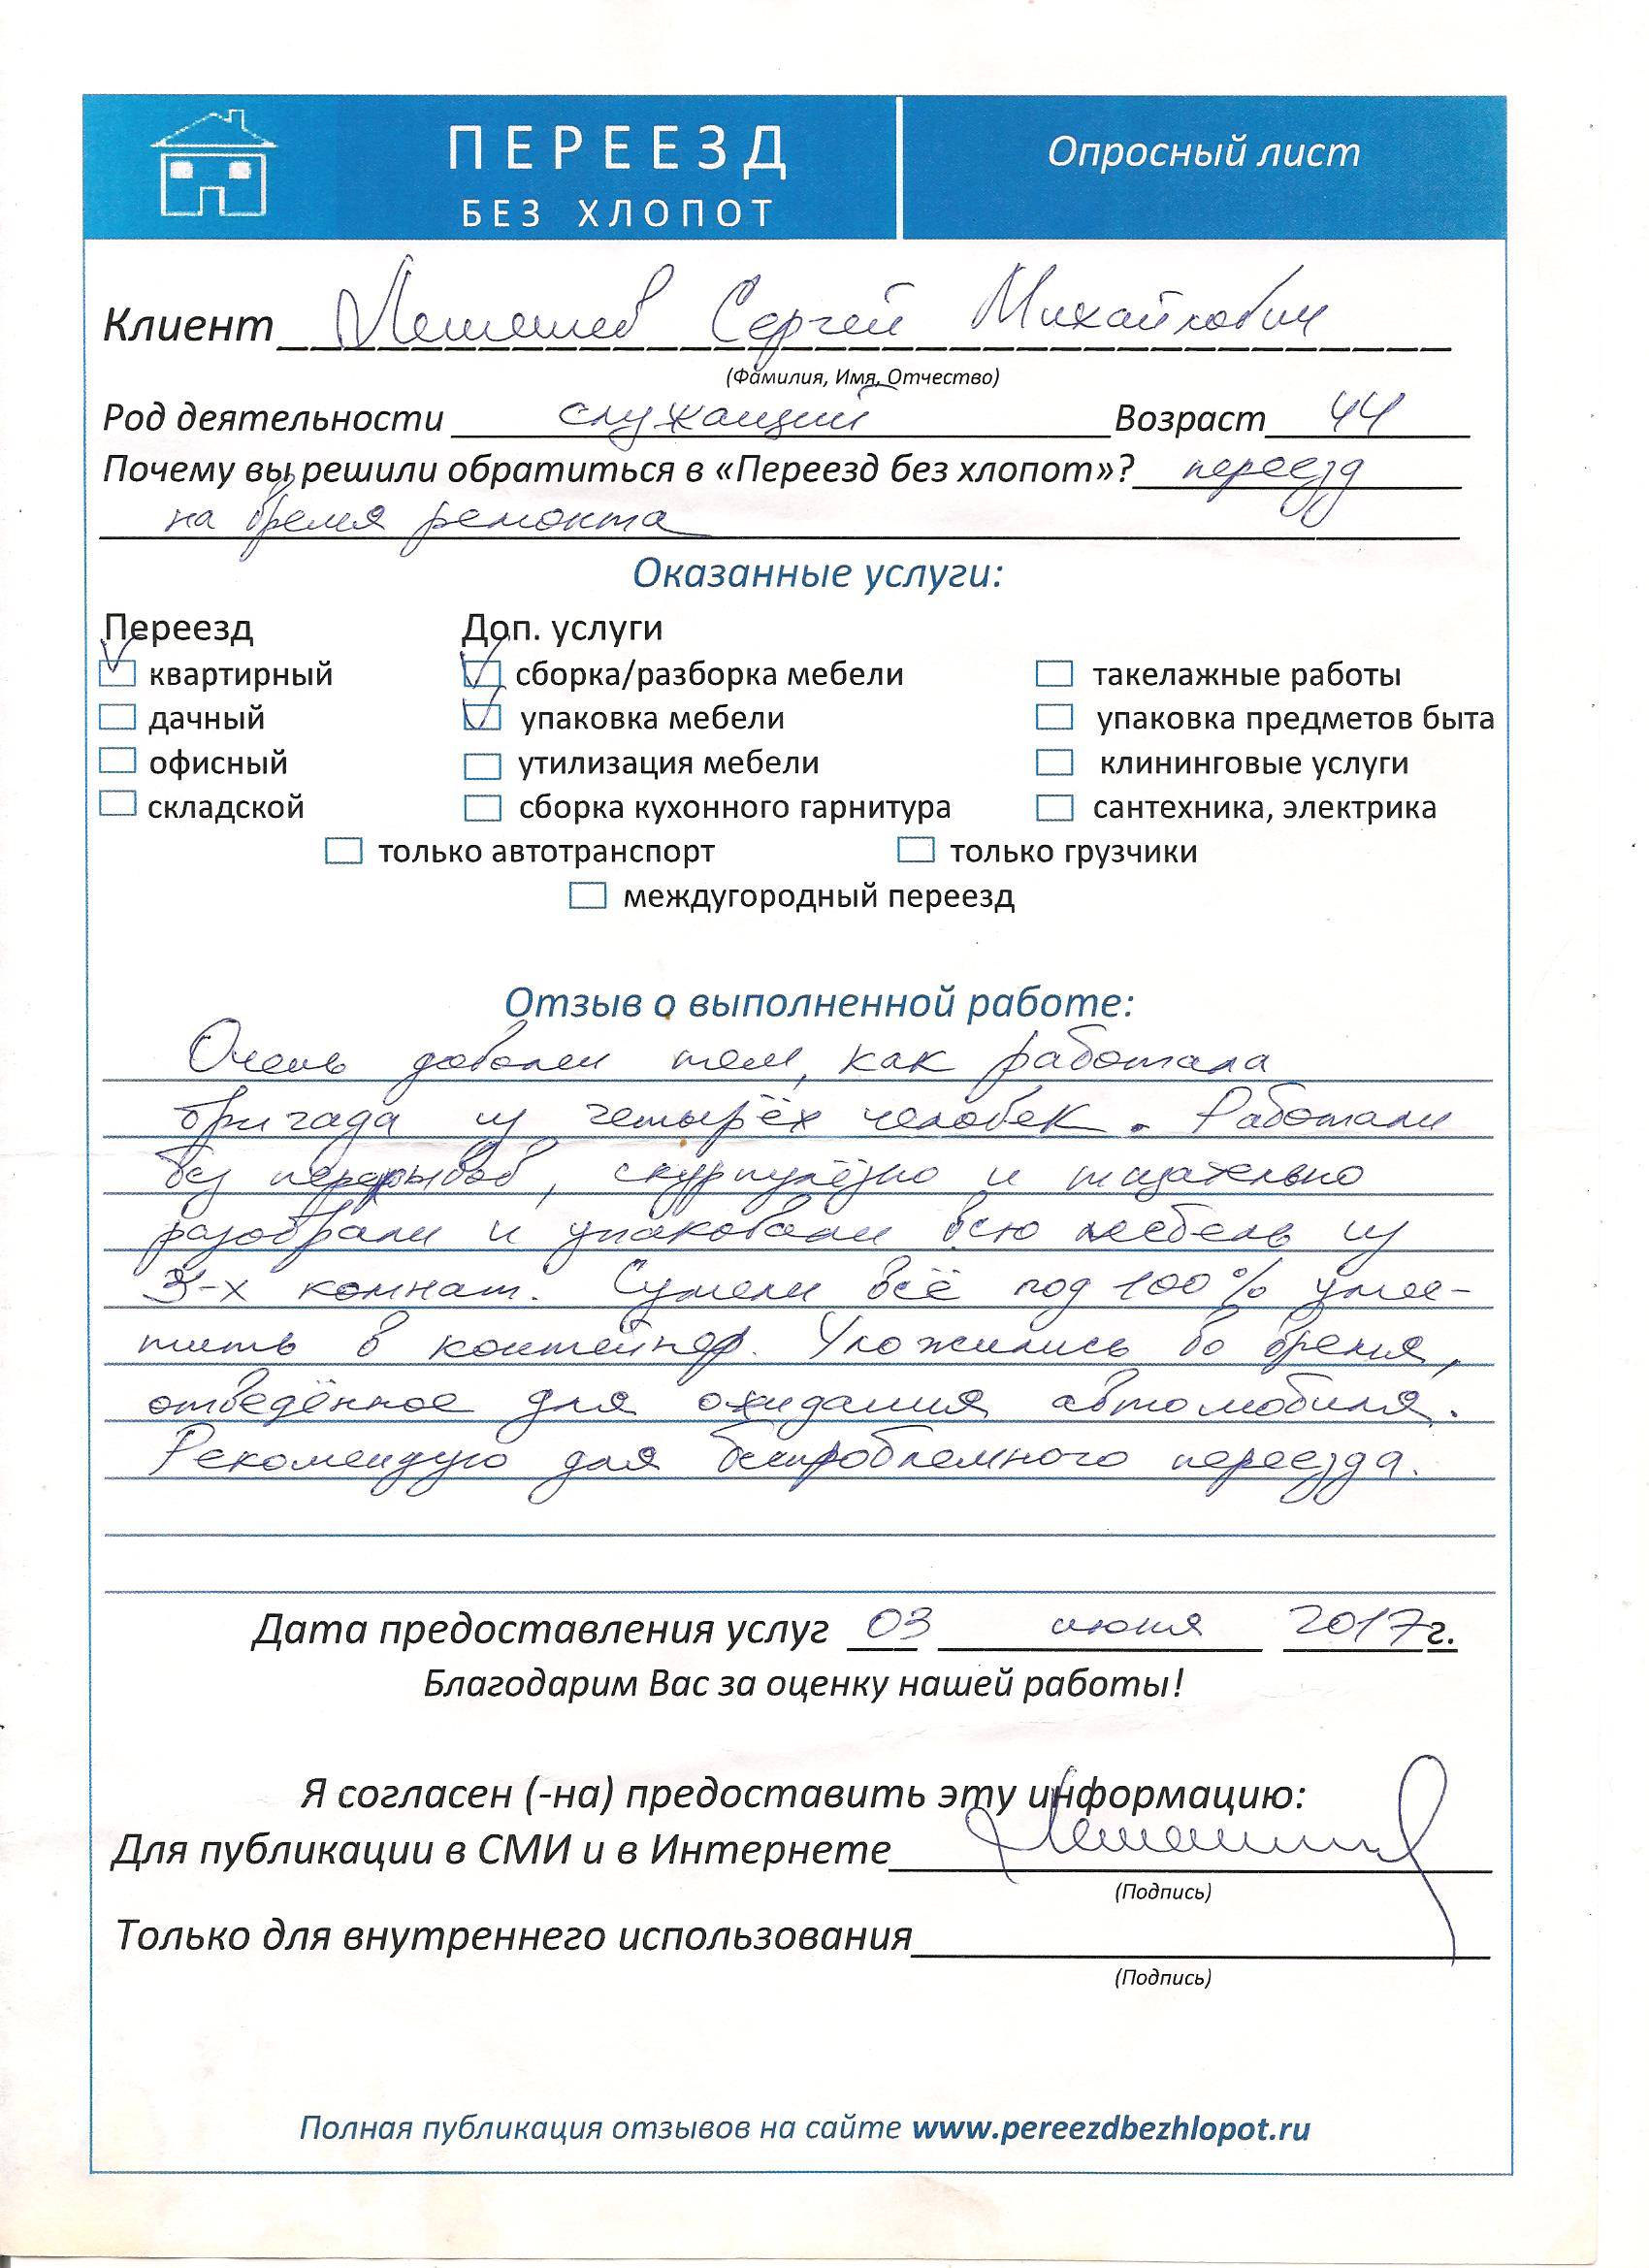 ПЕРЕЕЗД
БЕЗ ХЛОПОТ
Опросный лист
Клиент Сергей Михайлович
(Фамилия, Имя, Отчество)
Род деятельности служащий Возраст 44
Почему вы решили обратиться в «Переезд без хлопот»? переезд
на время ремонта
Оказанные услуги:
Переезд Доп. услуги
квартирный сборка/разборка мебели такелажные работы
дачный упаковка мебели упаковка предметов быта
офисный утилизация мебели клининговые услуги
складской сборка кухонного гарнитура сантехника, электрика
только автотранспорт только грузчики
междугородный переезд
Отзыв о выполненной работе:
Очень доволен тем, как работала
бригада из четырёх человек. Работали
без перерывов, скурпулёзно и тщательно
разобрали и упаковали всю мебель из
3-х комнат. Сумели всё под 100% умес-
тить в контейнер. Уложились во время,
отведённое для ожидания автомобиля.
Рекомендую для беспроблемного переезда.
Дата предоставления услуг 03 июня 2017г.
Благодарим Вас за оценку нашей работы!
Я согласен (-на) предоставить эту информацию:
Для публикации в СМИ и в Интернете
(Подпись)
Только для внутреннего использования
(Подпись)
Полная публикация отзывов на сайте www.pereezdbezhlopot.ru